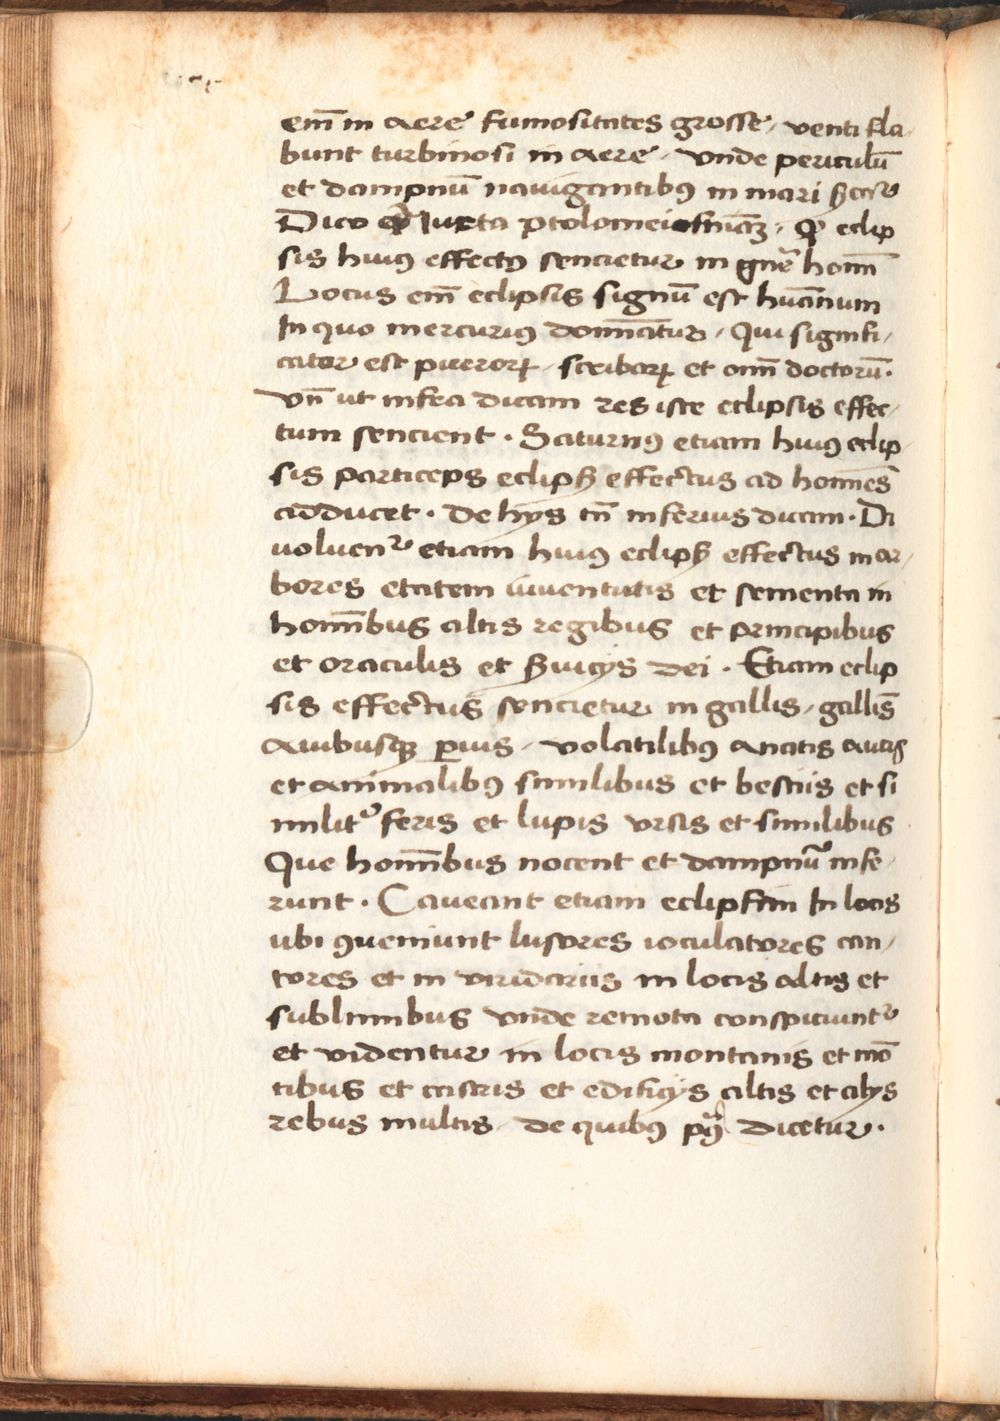 em̄ in aere fumositates grosse, venti fla,
bunt turbinosi in aere, vnde periculū
et dampnū nauigantibꝯ in mari
Dico Iuxta ptolomei Qꝫ eclip
sis huiꝯ effectꝯ sencietur in gn̄e hoīm
Locus em̄ eclipsis signū est hūanum
In quo mercuriꝯ domīatur, Qui signifi,
cator est pueroꝝ, scribaꝝ et om̄ doctorū.
Vn̄ ut infra dicam res iste eclipsis effec,
tum sencient. Saturnꝯ etiam huiꝯ eclip,
sis particeps eclipsꝭ effectus ad homīes
adducet. De hijs tn̄ inferius dicam. Di
uoluent᷑ etiam huiꝯ eclipsꝭ effectus in ar,
bores etatem iuuentutis et sementa in
homībus altis regibus et principibus
et oraculis et ẜuicijs dei. Etiam eclip
sis effectus sencietur in gallis, gallīs
Auibusqꝫ ꝑuis, volatilibꝯ anatis aucis
et animalibꝯ similibus et bestiis et si
milit᷑ feris et lupis vrsis et similibus
Que homībus nocent et dampnū infe,
runt. Caueant etiam eclipsim In locis
ubi ꝯueniunt lusores ioculatores can,
tores et in viridariis in locis altis et
sublimibus vnde remota conspiciunt᷑
et videntur in locis montanis et mō
tibus et castris et edificijs altis et alijs
rebus multis, de quibꝯ dicetur.